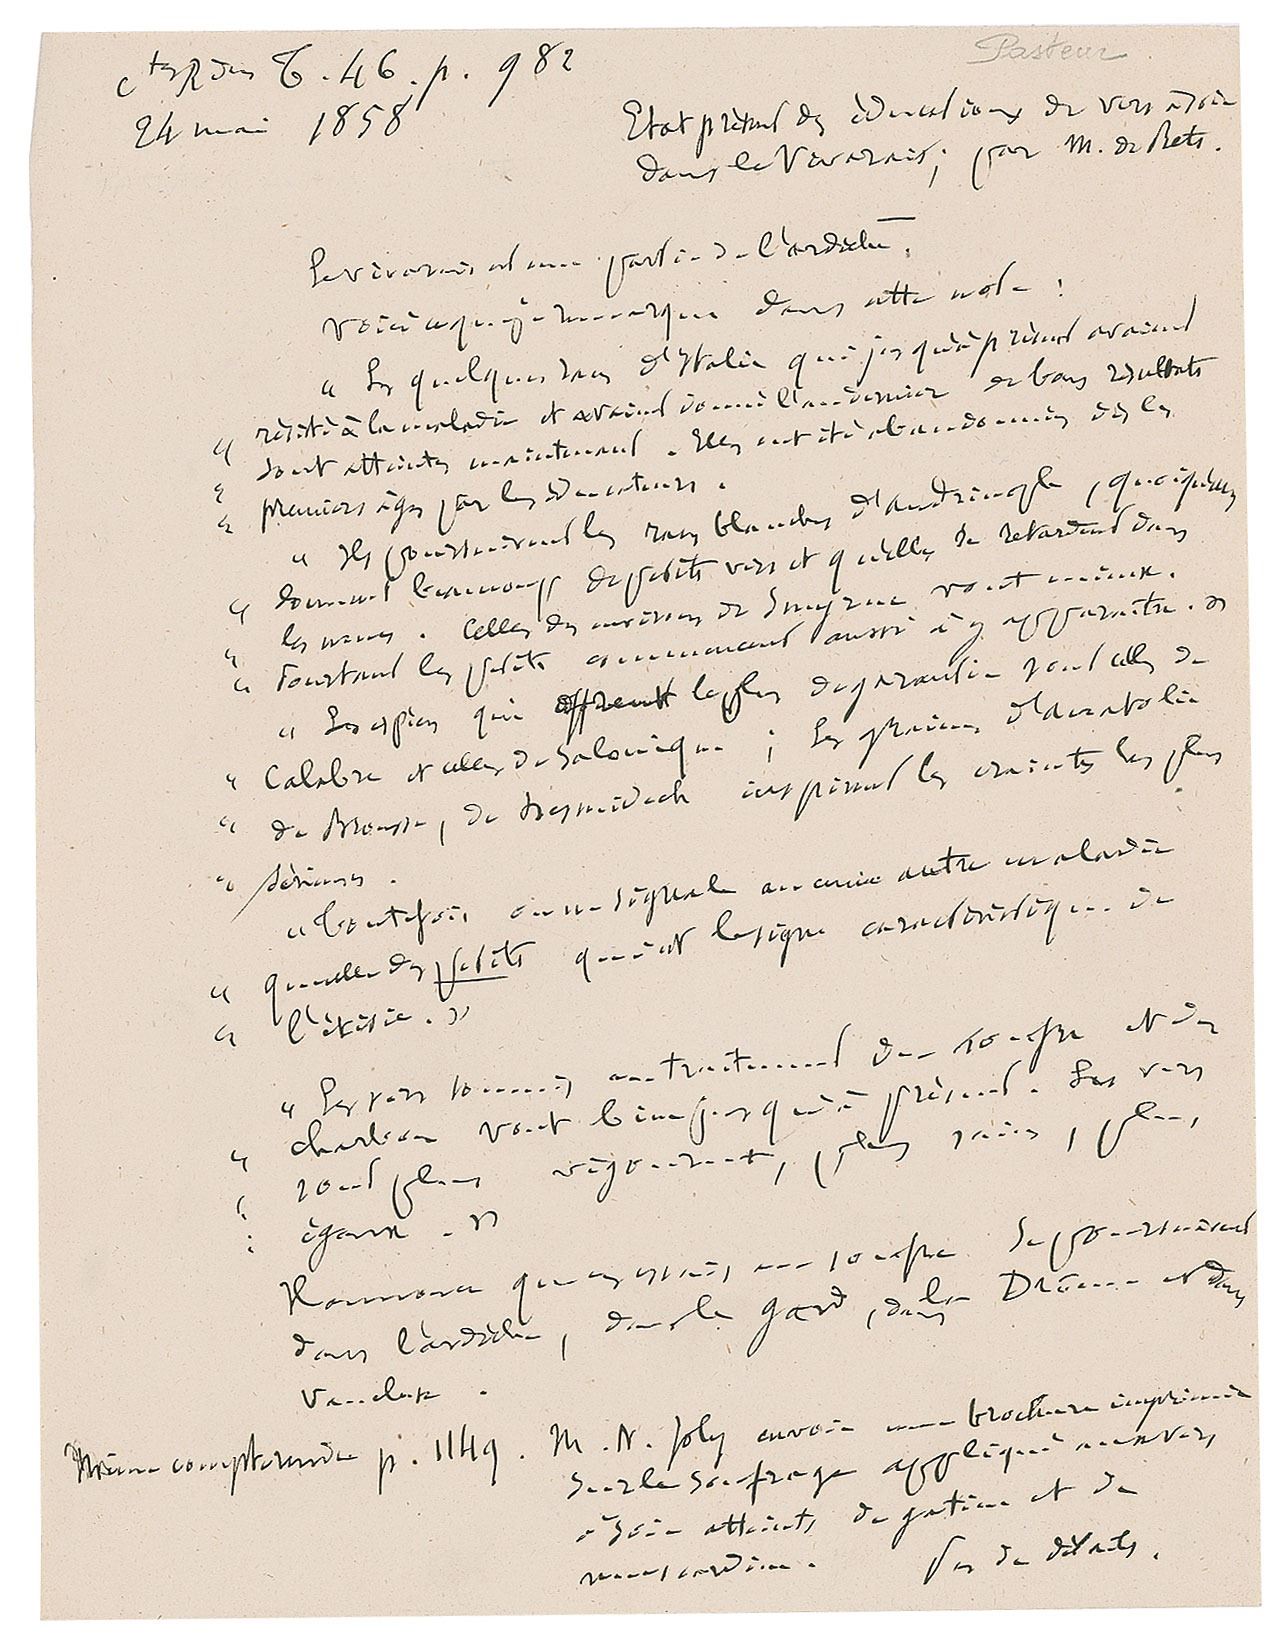 Pasteur
Ctes Rdus T. 46. p. 982
24 mai 1858
Etat présent des éducations de vers à soie
dans le Vivarais; par M. de Retz.
Le vivarais est une partie de l'ardèche.
Voici ce que je remarque dans cette note :
" Les quelques races d'Italie qui jusqu'à présent avaient
" résisté à la maladie et avaient donné l'an dernier de bons résultats
" sont atteintes maintenant. Elles ont été abandonnées dès les
" premiers âges par les éducateurs.
" Ils poursuivent les races blanches d'andrinople, quoiqu'elles
" donnent beaucoup de petits vers et qu'elles se retardent dans
" les mues. Celles des environs de Smyrne vont mieux.
" Pourtant les petits commencent aussi à y apparaître. »
" Les espèces qui offrent le plus de garantie sont celles de
" Calabre et celles de Salonique ; les graines d'anatolie
" de Brousse, de inspirent les craintes les plus
" sérieuses.
" Toutefois on ne signale aucune autre maladie
" que celle des petits qui est le signe caractéristique de
" l'étisie. »
" Les vers soumis au traitement du soufre et du
" charbon vont bien jusqu'à présent. Les vers
sont plus vigoureux, plus sains, plus
égaux. »
Il annonce que ces essais au soufre se poursuivent
dans l'ardèche, dans le Gard, dans la Drôme et dans
Vaucluse.
Même compte rendu p. 1149. M. N. Joly envoie une brochure imprimée
sur le soufrage appliqué aux vers
à soie atteints de gatine et de
muscardine. Pas de détails.